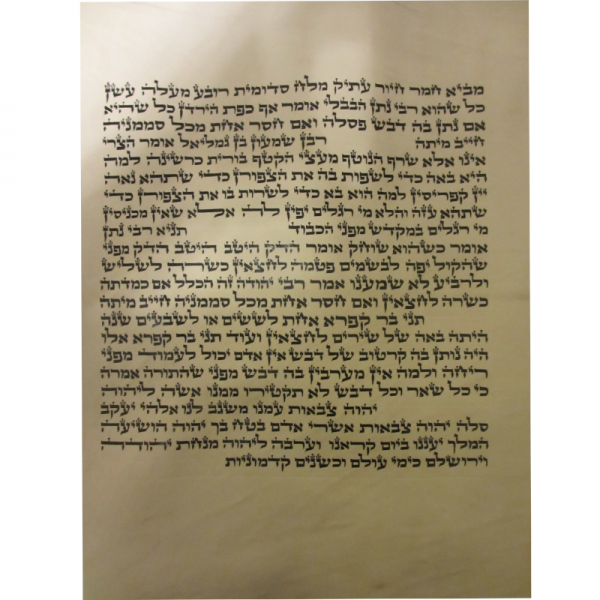 מביא חמר חיור עתיק מלח סדומית רובע מעלה עשן
כל שהוא רבי נתן הבבלי אומר אף כפת הירדן כל שהיא
אם נתן בה דבש פסלה ואם חסר אחת מכל סממניה
חייב מיתה רבן שמעון בן גמליאל אומר הצרי
אינו אלא שרף הנוטף מעצי הקטף בורית כרשינה למה
היא באה כדי לשפות בה את הצפורן כדי שתהא נאה
יין קפריסין למה הוא בא כדי לשרות בו את הצפורן כדי
שתהא עזה והלא מי רגלים יפין לה אלא שאין מכניסין
מי רגלים במקדש מפני הכבוד תניא רבי נתן
אומר כשהוא שוחק אומר הדק היטב היטב הדק מפני
שהקול יפה לבשמים פטמה לחצאין כשרה לשליש
ולרביע לא שמענו אמר רבי יהודה זה הכלל אם כמדתה
כשרה לחצאין ואם חסר אחת מכל סממניה חייב מיתה
תני בר קפרא אחת לששים או לשבעים שנה
היתה באה של שירים לחצאין ועוד תני בר קפרא אלו
היה נותן בה קרטוב של דבש אין אדם יכול לעמוד מפני
ריחה ולמה אין מערבין בה דבש מפני שהתורה אמרה
כי כל שאר וכל דבש לא תקטירו ממנו אשה ליהוה
יהוה צבאות עמנו משגב לנו אלהי יעקב
סלה יהוה צבאות אשרי אדם בטח בך יהוה הושיעה
המלך יעננו ביום קראנו וערבה ליהוה מנחת יהודה
וירושלם כימי עולם וכשנים קדמוניות